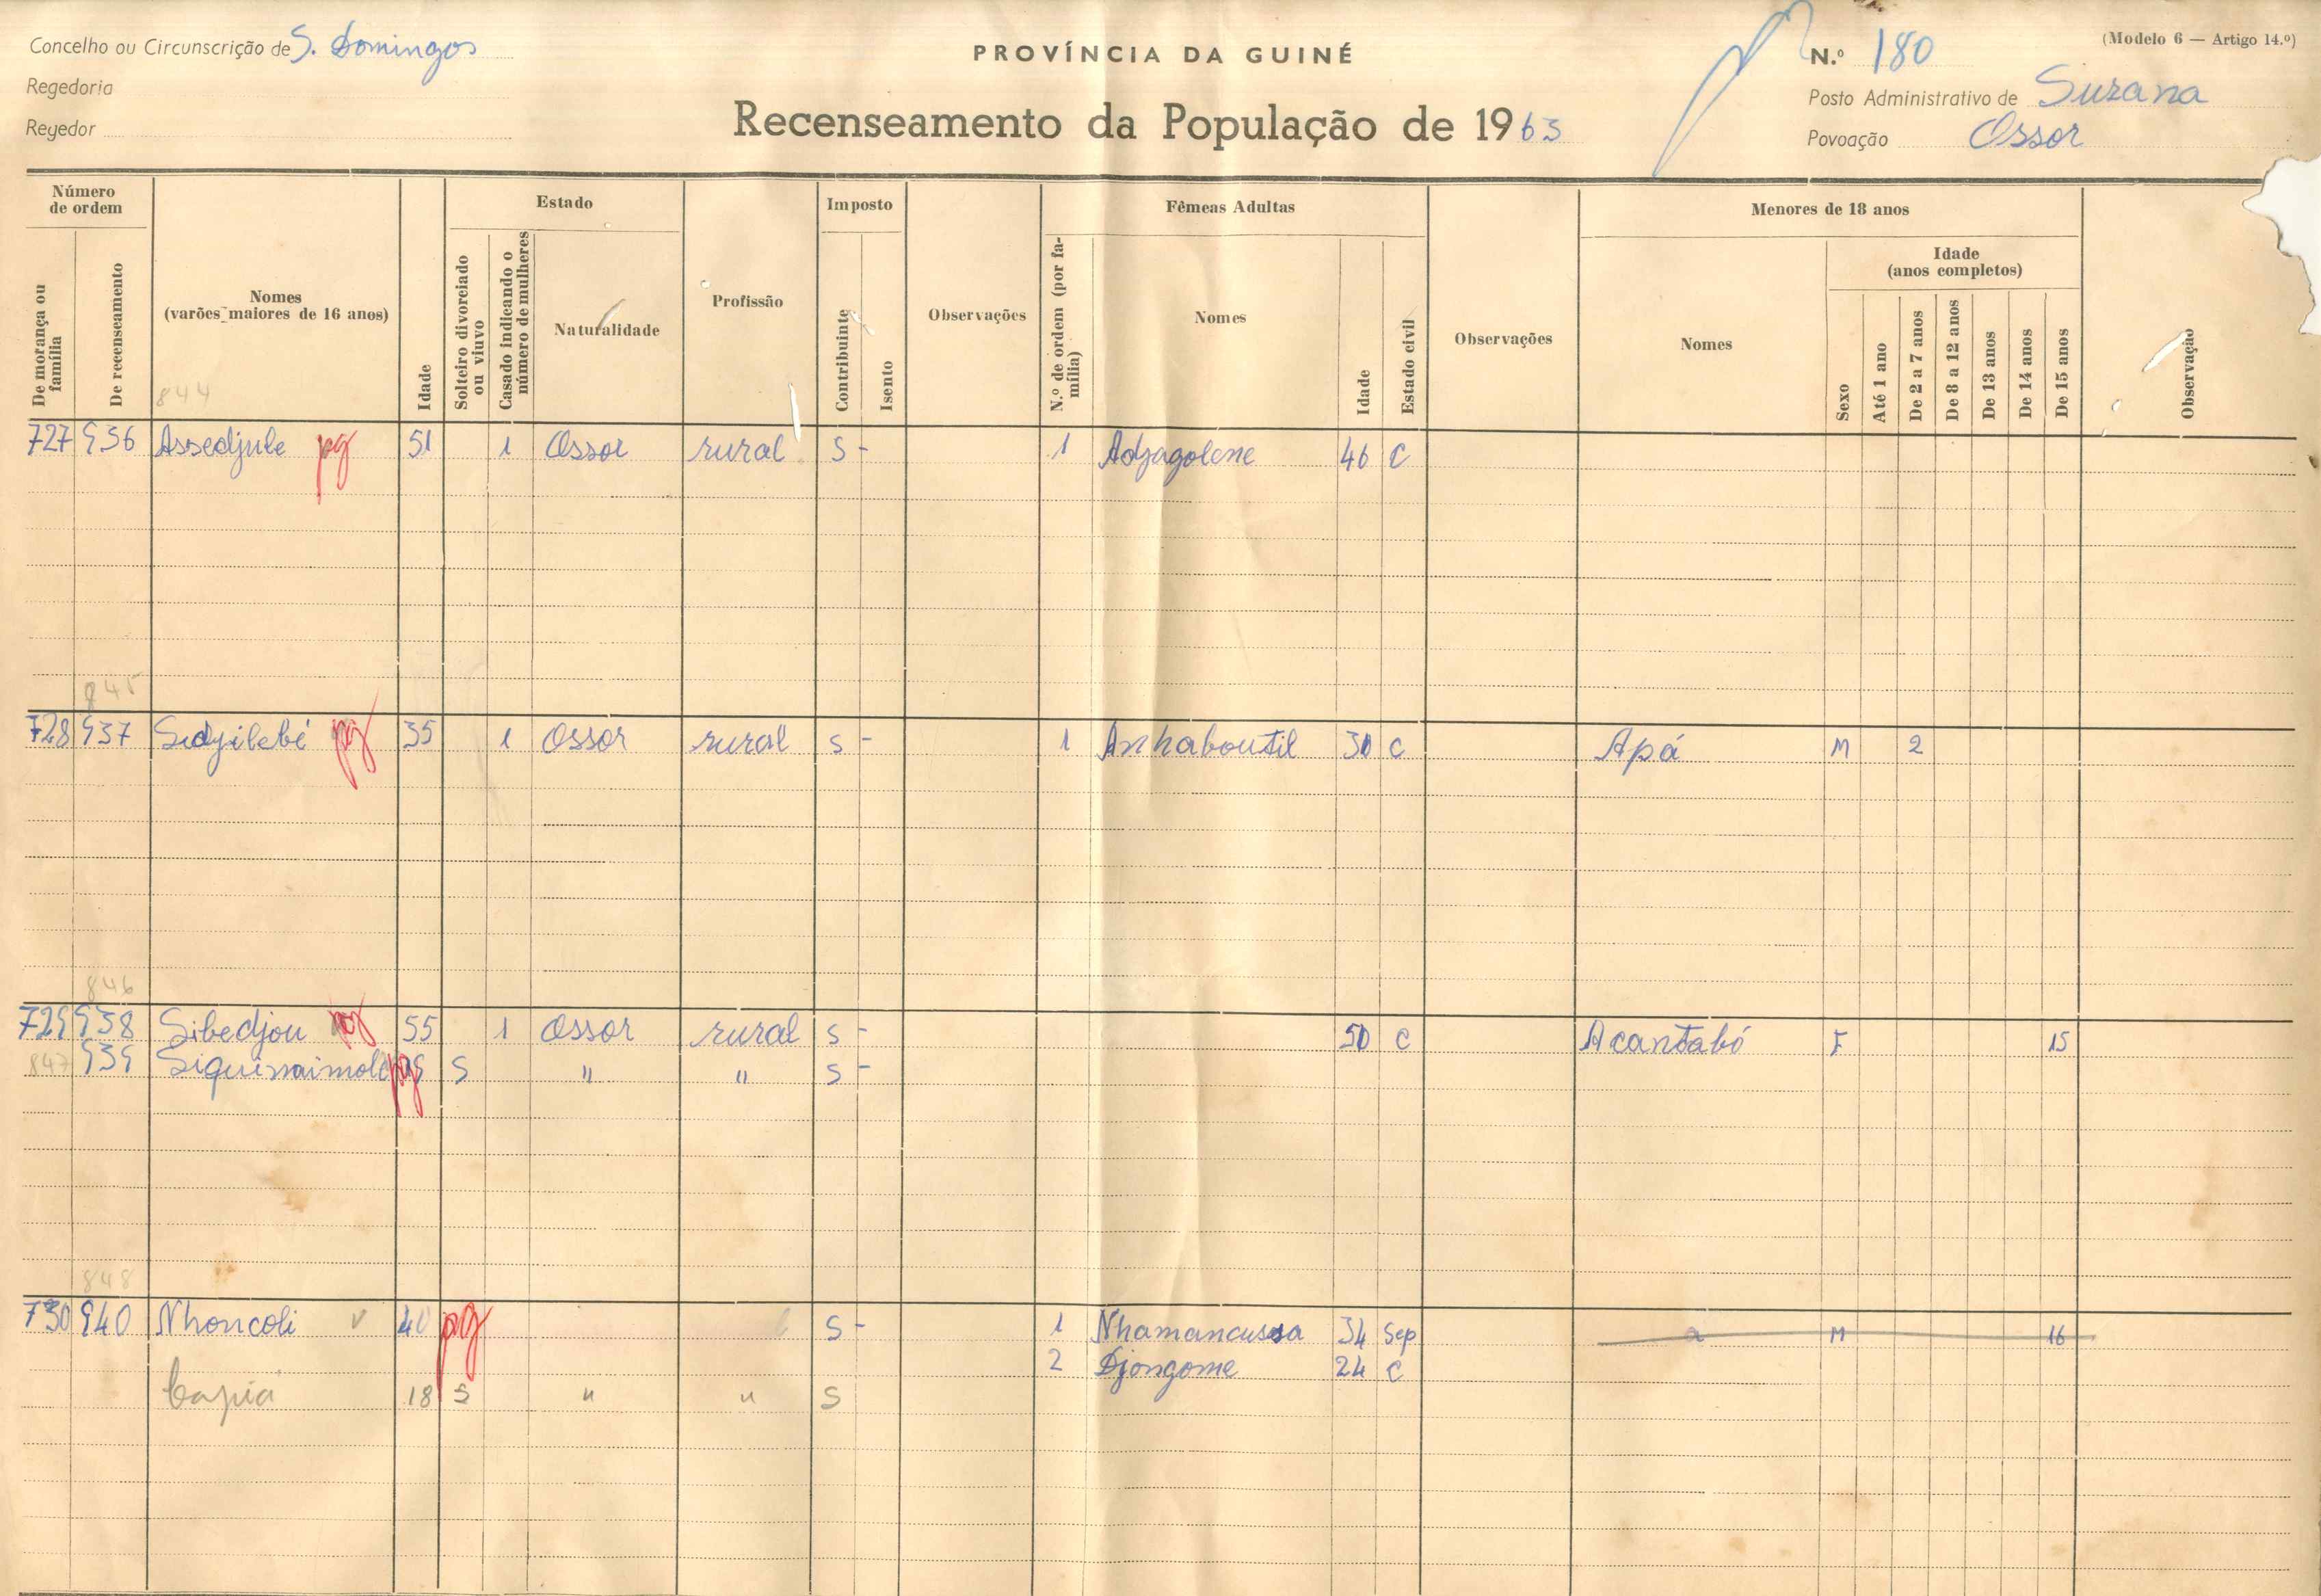 Concelho ou Circunscrição de S. Domingos
Regedoria
Regedor
PROVÍNCIA DA GUINÉ
Recenseamento da População de 1963
(Modelo 6 — Artigo 14.º)
N.º 180
Posto Administrativo de Suzana
Povoação Ossor
Número de ordem
De morança ou família
De recenseamento
Nomes
(varões maiores de 16 anos)
844
Idade
Estado
Solteiro divorciado ou viuvo
Casado indicando o número de mulheres
Naturalidade
Profissão
Imposto
Contribuinte
Isento
Observações
Fêmeas Adultas
N.º de ordem (por família)
Nomes
Idade
Estado civil
Observações
Menores de 18 anos
Nomes
Idade
(anos completos)
Sexo
Até 1 ano
De 2 a 7 anos
De 8 a 12 anos
De 13 anos
De 14 anos
De 15 anos
Observação
727 936 Assedjule pg 51 1 Ossor rural S - 1 Adjagolene 46 C
845
728 937 Sidjilebé pg 35 1 Ossor rural S - 1 Anhaboutil 30 C Apá M 2
846
729 938 Sibedjou pg 55 1 Ossor rural S - 50 C Acantabó F 15
847 939 pg S " " S -
848
730 940 Nhoncoli v 40 pg S - 1 Nhamancussa 34 Sep M 16
2 Djongome 24 C
18 S " " S